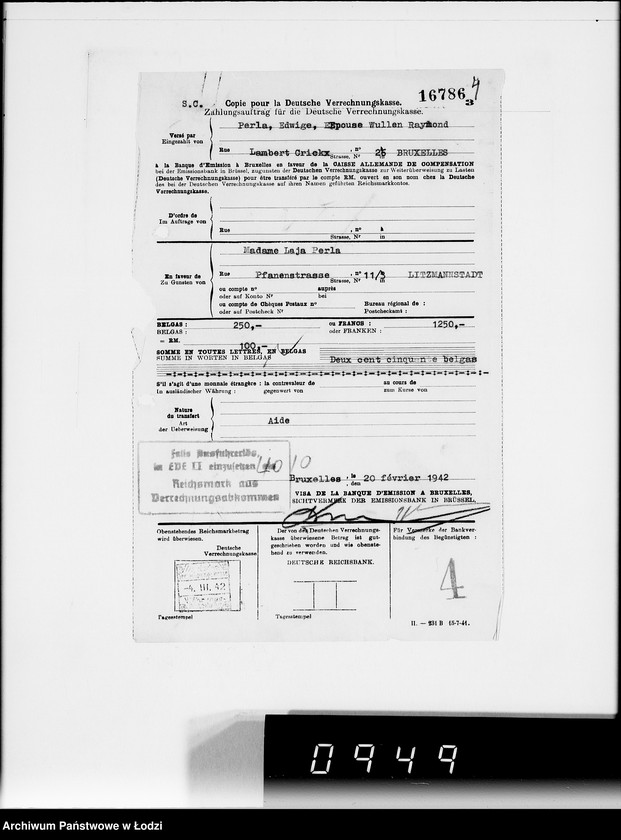 S.C. Copie pour la Deutsche Verrechnungskasse. 16786
Zahlungsauftrag für die Deutsche Verrechnungskasse.
Versé par Perla, Edwige, Epouse Wullen Raymond
Eingezahlt von
Rue Lambert Crickx, n° 25 à BRUXELLES
Strasse, Nr in
à la Banque d'Emission à Bruxelles en faveur de la CAISSE ALLEMANDE DE COMPENSATION
bei der Emissionsbank in Brüssel, zugunsten der Deutschen Verrechnungskasse zur Weiterüberweisung zu Lasten
(Deutsche Verrechnungskasse) pour être transféré par le compte RM. ouvert en son nom chez la Deutsche
des bei der Deutschen Verrechnungskasse auf ihren Namen geführten Reichsmarkkontos.
Verrechnungskasse.
D'ordre de
Im Auftrage von
Rue , n° à
Strasse, Nr in
Madame Laja Perla
En faveur de
Zu Gunsten von
Rue Pfanenstrasse , n° 11/3 LITZMANNSTADT
Strasse, Nr in
ou compte n° auprès
oder auf Konto Nr bei
ou compte de Chèques Postaux n° Bureau régional de :
oder auf Postcheck Nr Postcheckamt :
BELGAS : 250,- ou FRANCS : 1250,-
BELGAS : oder FRANKEN :
= RM. 100,-
SOMME EN TOUTES LETTRES, EN BELGAS
SUMME IN WORTEN IN BELGAS Deux cent cinquante belgas
S'il s'agit d'une monnaie étrangère : la contrevaleur de au cours de
In ausländischer Währung : gegenwert von zum Kurse von
Nature
du transfert Aide
Art
der Ueberweisung
Falls Ausfuhrerlös,
in EDE II einzusehen
Reichsmark aus
Verrechnungsabkommen
Bruxelles, le 20 février 1942
den
VISA DE LA BANQUE D'EMISSION A BRUXELLES,
SICHTVERMERK DER EMISSIONSBANK IN BRÜSSEL,
Obenstehendes Reichsmarkbetrag
wird überwiesen.
Deutsche
Verrechnungskasse
-4. III. 42
Tagesstempel
Der von der Deutschen Verrechnungs-
kasse überwiesene Betrag ist gut-
geschrieben worden und wie obenste-
hend zu verwenden.
DEUTSCHE REICHSBANK.
Tagesstempel
Für Vermerke der Bankver-
bindung des Begünstigten :
4
II. — 231 B 15-7-41.
0949
Archiwum Państwowe w Łodzi